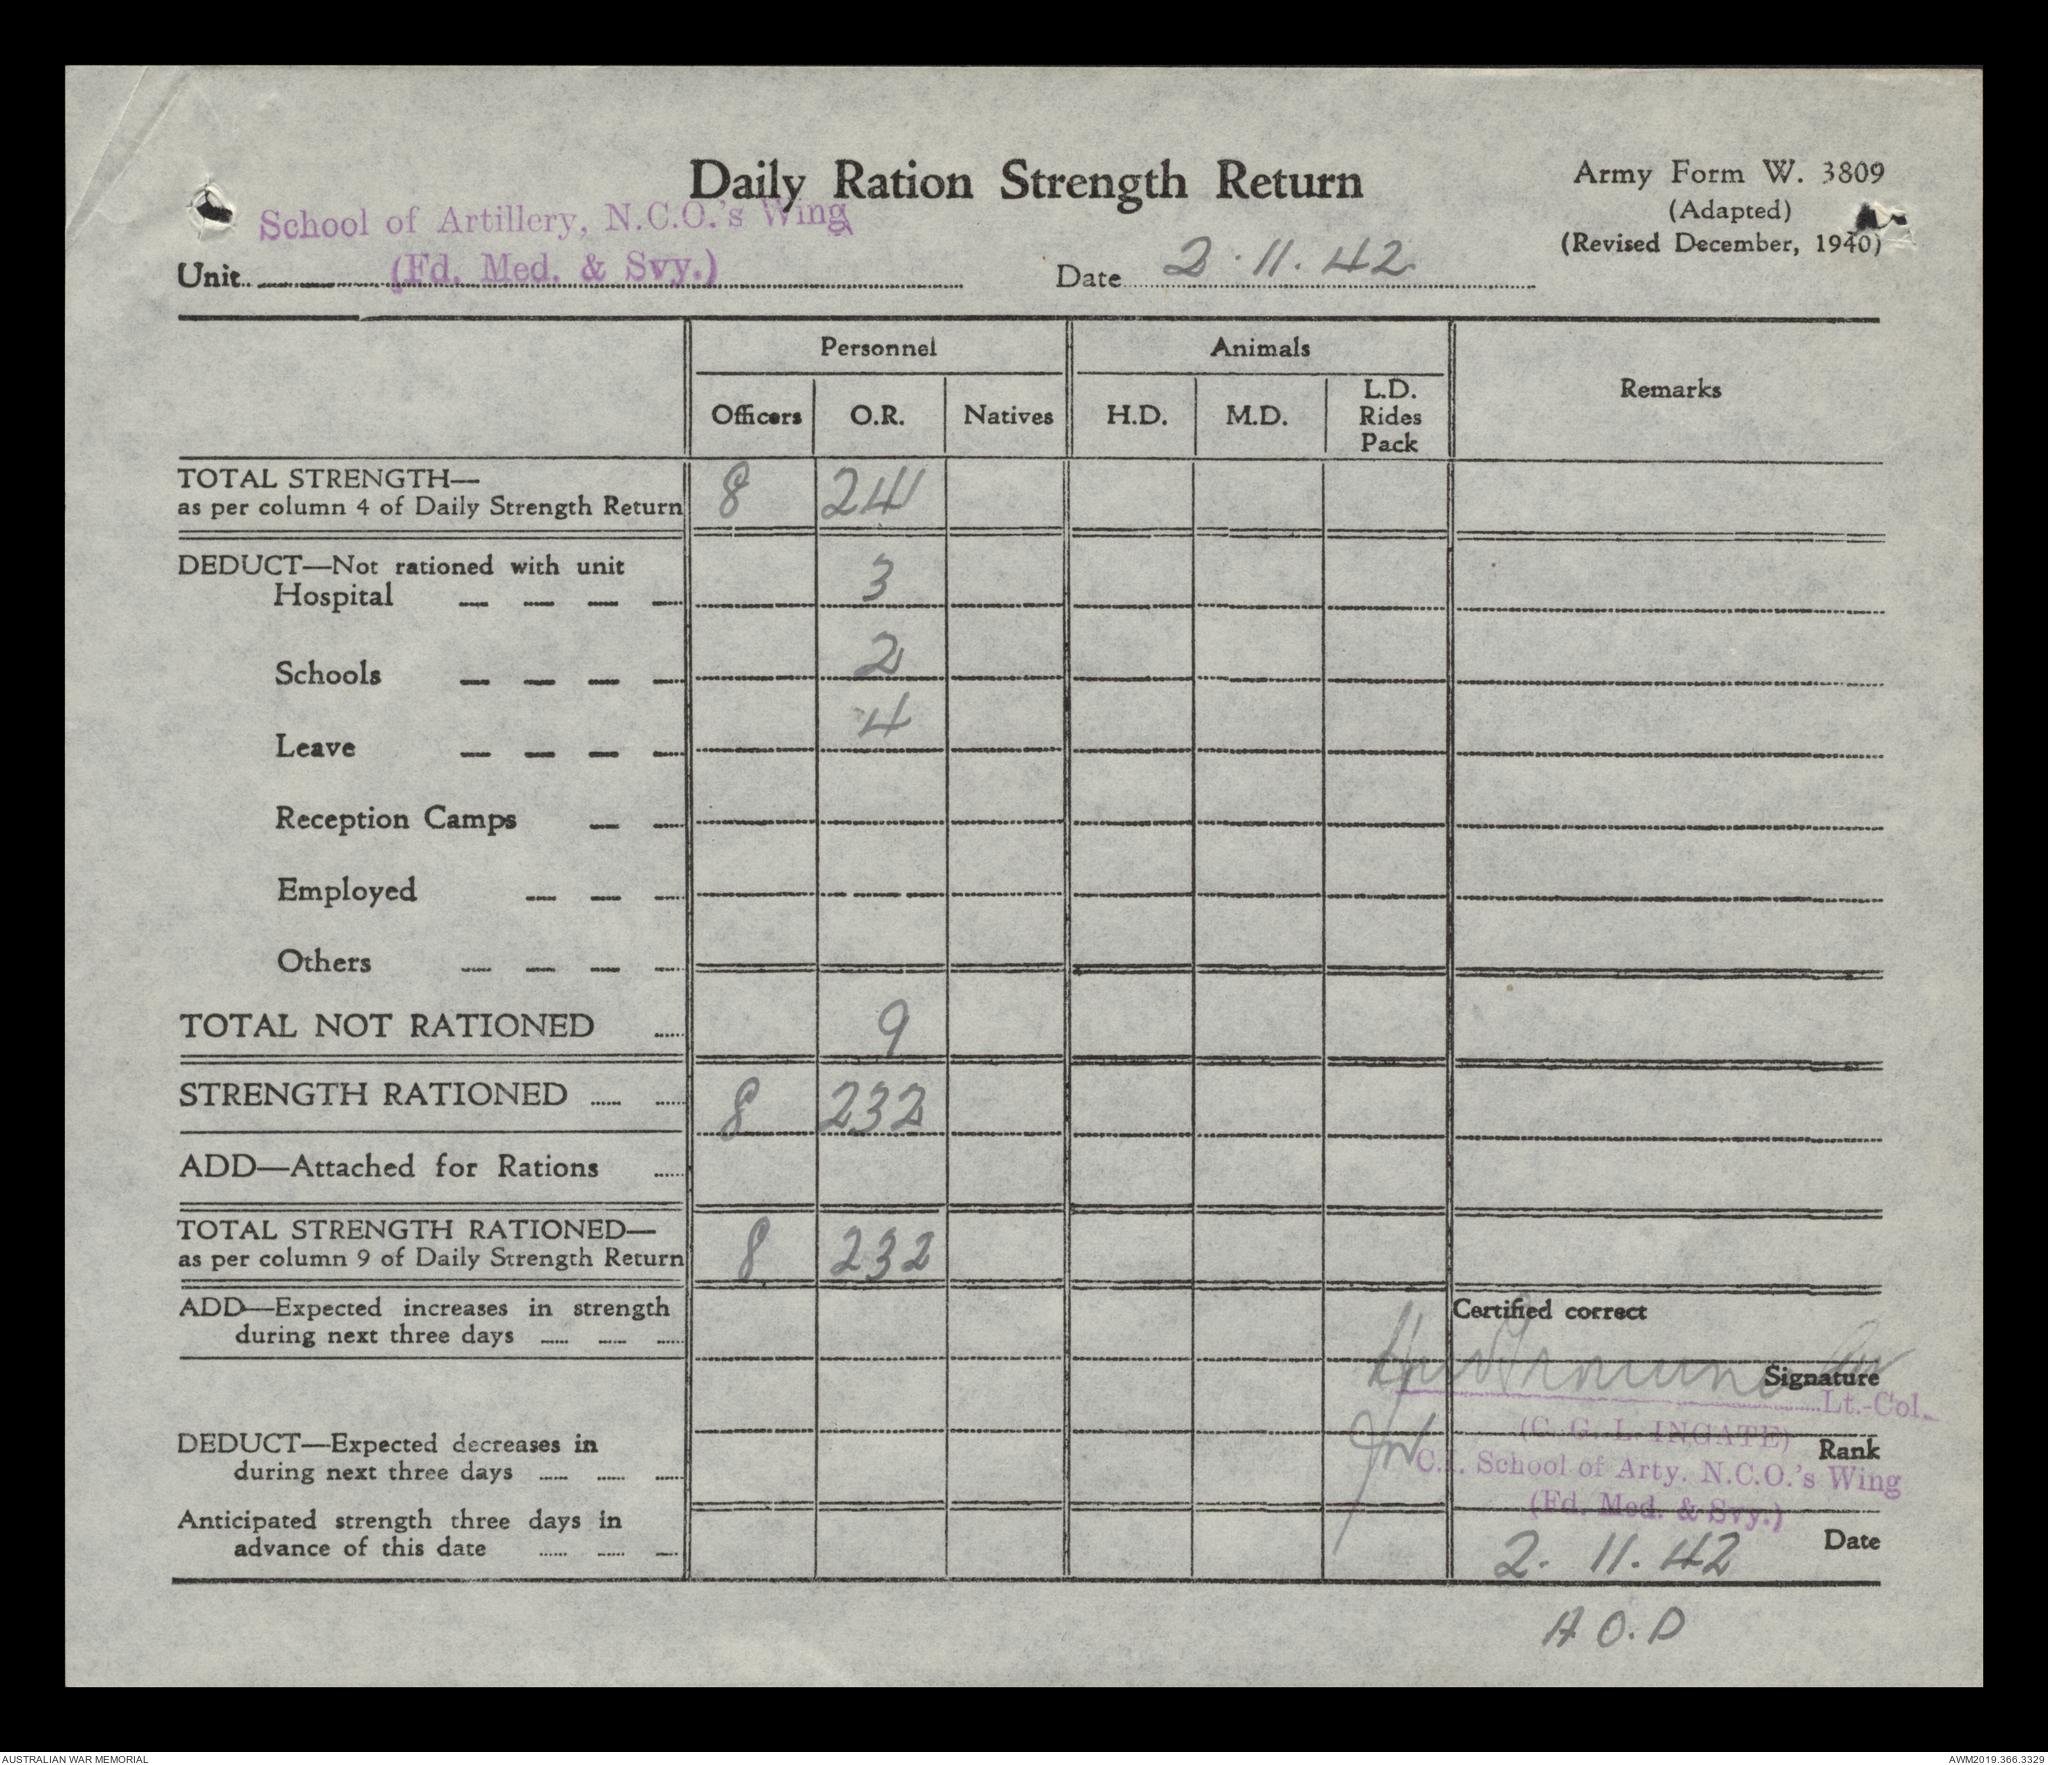 Daily Ration Strength Return
Army Form W. 3809
(Adapted)
(Revised December, 1940)
School of Artillery, N.C.O.'s Wing
(Fd. Med. & Svy.)
Unit
Date 2.11.42
Personnel
Animals
Remarks
Officers
O.R.
Natives
H.D.
M.D.
L.D.
Rides
Pack
TOTAL STRENGTH—
as per column 4 of Daily Strength Return 8 241
DEDUCT—Not rationed with unit
Hospital 3
Schools 2
Leave 4
Reception Camps
Employed
Others
TOTAL NOT RATIONED 9
STRENGTH RATIONED 8 232
ADD—Attached for Rations
TOTAL STRENGTH RATIONED—
as per column 9 of Daily Strength Return 8 232
ADD—Expected increases in strength
during next three days
Certified correct
Signature
Lt.-Col.
(C. G. L. INGATE)
Rank
C.I. School of Arty. N.C.O.'s Wing
(Fd. Med. & Svy.)
DEDUCT—Expected decreases in
during next three days
Anticipated strength three days in
advance of this date
Date
2. 11. 42
A O. D
AUSTRALIAN WAR MEMORIAL
AWM2019.366.3329